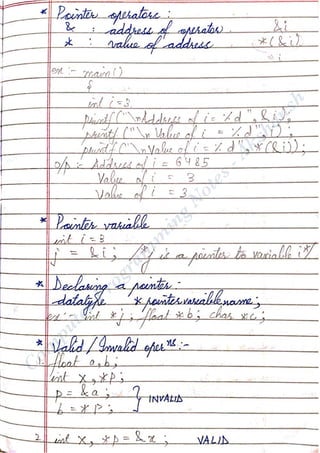 * Pointer operators :
& : address of operator. &i
* : value of address *(&i)
= i
ex :- main()
{
int i=3
printf("\nAddress of i = %d", &i);
printf("\n Value of i = %d", i);
printf("\n Value of i = %d", *(&i));
o/p :- Address of i = 6485
Value of i = 3
Value of i = 3
* Pointer variable
int i = 3
j = &i; /*j is a pointer to variable i*/
* Declaring a pointer :-
datatype *pointervariablename;
ex:- int *j; float *b; char *c;
* Valid / Invalid oper ns :-
1. float a,b;
int x, *p;
p = &a;
b = *p; } INVALID
2. int x, *p = &x; VALID
Computer Programming Notes -